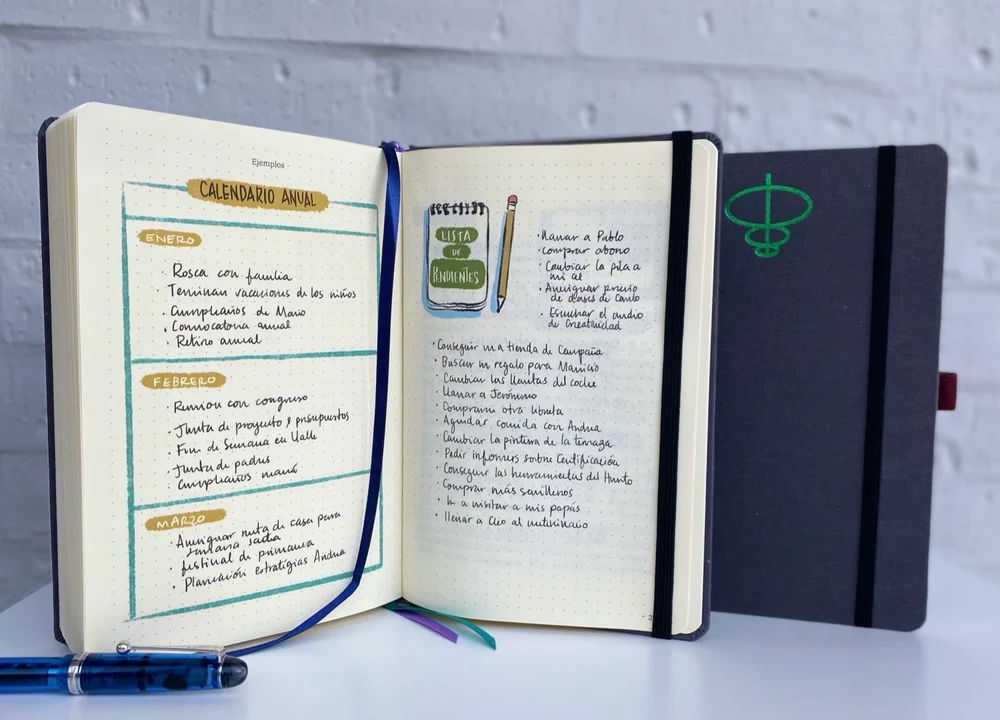 Ejemplos
CALENDARIO ANUAL
ENERO
· Rosca con familia
· Terminan vacaciones de los niños
· Cumpleaños de Mario
· Convocatoria anual
· Retiro anual
FEBRERO
· Reunion con congreso
· Junta de proyecto y presupuestos
· Fin de Semana en Valle
· Junta de padres
· Cumpleaños mamá
MARZO
· Averiguar renta de casa para
semana santa
· festival de primavera
· Planeación estratégias Andrea
LISTA
DE
PENDIENTES
· Llamar a Pablo
· Comprar abono
· Cambiar la pila a
mi
· Averiguar precio
de clases de Canto
· Escuchar el audio
de Creatividad
· Conseguir una tienda de Campaña
· Buscar un regalo para Mauricio
· Cambiar las llantas del coche
· Llamar a Jerónimo
· Comprarme otra libreta
· Agendar comida con Andrea
· Cambiar la pintura de la terraza
· Pedir informes sobre Certificación
· Conseguir las herramientas del Huerto
· Comprar más semilleros
· Ir a visitar a mis papás
· llevar a Cleo al veterinario